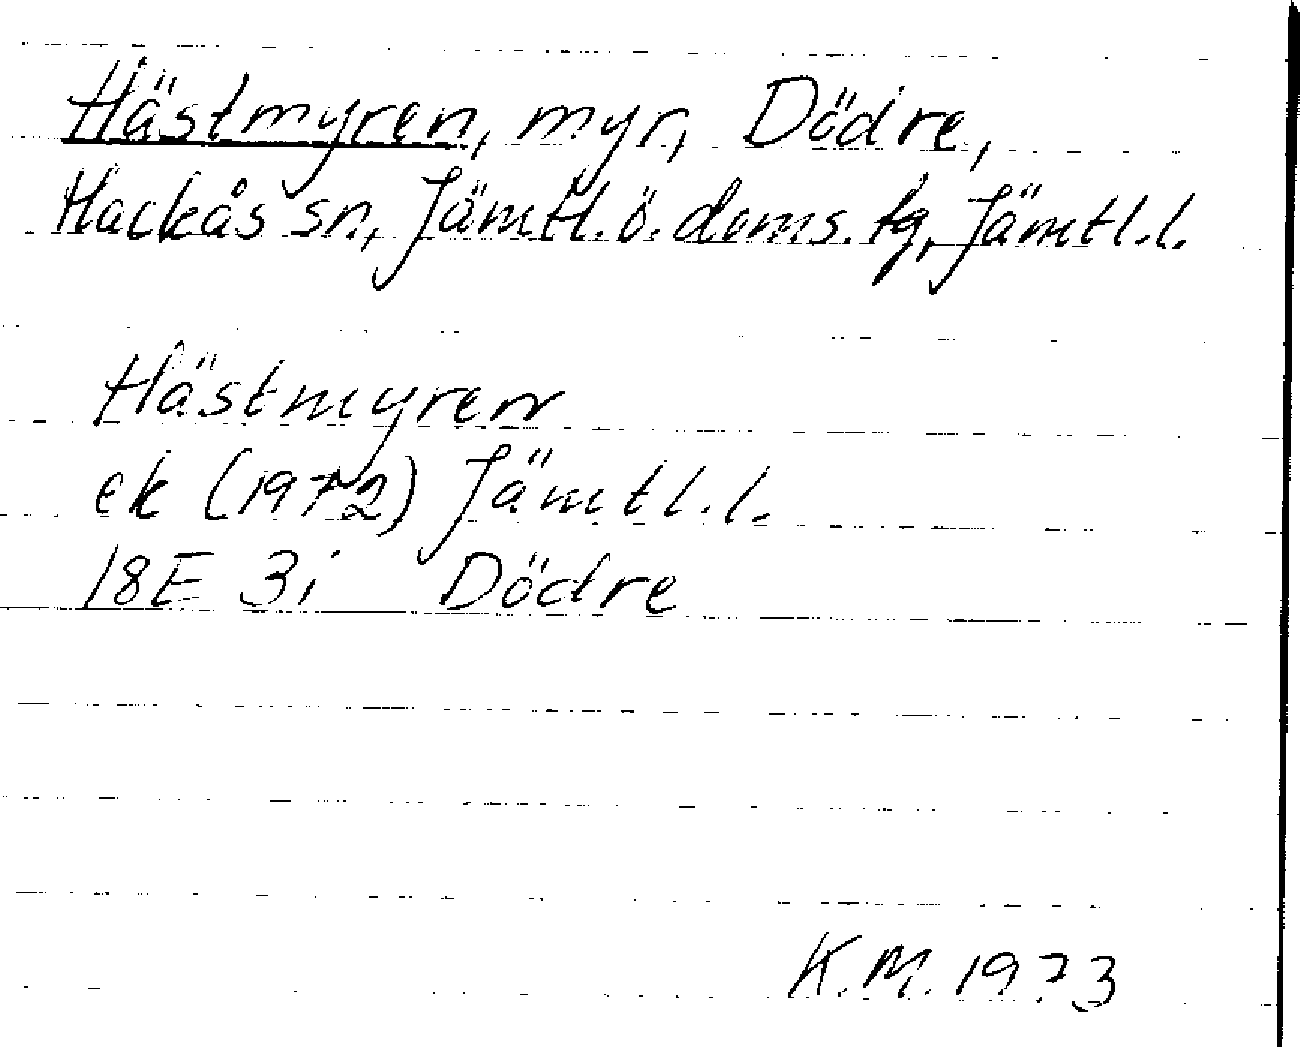 Hästmyren, myr, Dödre,
Hackås sn, Jämtl. ö. doms. tg, Jämtl. l.
Hästmyren
ek (1972) Jämtl. l.
18E 3i Dödre
K.M. 1973